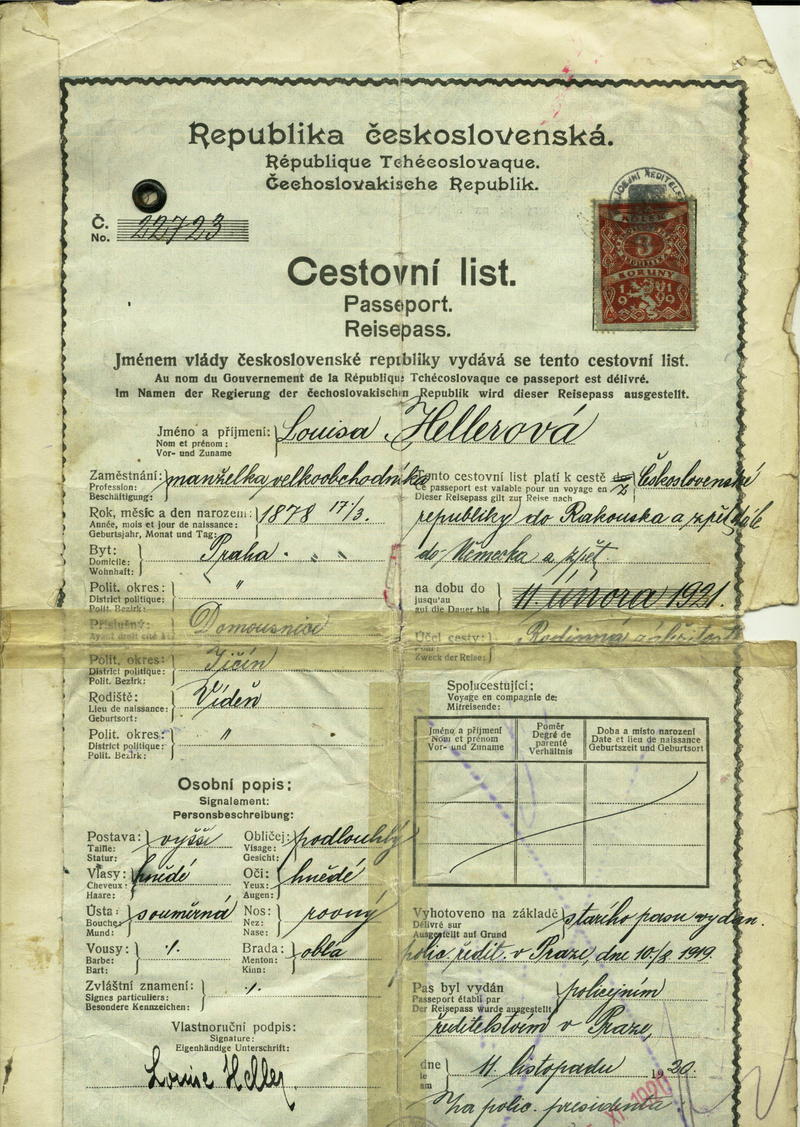 Republika československá.
République Tchécoslovaque.
Čechoslovakische Republik.
Č.
No. 22723
KOLEK
3
KORUNY
1919
Cestovní list.
Passeport.
Reisepass.
Jménem vlády československé republiky vydává se tento cestovní list.
Au nom du Gouvernement de la République Tchécoslovaque ce passeport est délivré.
Im Namen der Regierung der čechoslovakischen Republik wird dieser Reisepass ausgestellt.
Jméno a příjmení: Louisa Hellerová
Nom et prénom:
Vor- und Zuname
Zaměstnání: manželka velkoobchodníka
Profession:
Beschäftigung:
Rok, měsíc a den narozem: 1878 17/3.
Année, mois et jour de naissance:
Geburtsjahr, Monat und Tag:
Byt: Praha. " "
Domicile:
Wohnhaft:
Polit. okres: "
District politique:
Polit. Bezirk:
Příslušný: Domousnice
Ayant droit cité à
Polit. okres: Jičín
District politique:
Polit. Bezirk:
Rodiště: Vídeň
Lieu de naissance:
Geburtsort:
Polit. okres: "
District politique:
Polit. Bezirk:
Osobní popis:
Signalement:
Personsbeschreibung:
Postava: vyšší
Taille:
Statur:
Obličej: podlouhlý
Visage:
Gesicht:
Vlasy: hnědé
Cheveux:
Haare:
Oči: hnědé
Yeux:
Augen:
Ústa: souměrná
Bouche:
Mund:
Nos: rovný
Nez:
Nase:
Vousy: ·/.
Barbe:
Bart:
Brada: oblá
Menton:
Kinn:
Zvláštní znamení: ·/.
Signes particuliers:
Besondere Kennzeichen:
Vlastnoruční podpis:
Signature:
Eigenhändige Unterschrift:
Louise Heller
Tento cestovní list platí k cestě do z Československé
Ce passeport est valable pour un voyage en
Dieser Reisepass gilt zur Reise nach
republiky do Rakouska a zpět, dále
do Německa a zpět.
na dobu do 11. února 1921.
jusqu'au
auf die Dauer bis
Účel cesty: Rodinná záležitost
Zweck der Reise:
Spolucestující:
Voyage en compagnie de:
Mitreisende:
Jméno a příjmení
Nom et prénom
Vor- und Zuname
Poměr
Degré de
parenté
Verhältnis
Doba a místo narození
Date et lieu de naissance
Geburtszeit und Geburtsort
Vyhotoveno na základě starího pasu vydan.
Délivré sur
Ausgestellt auf Grund
polic. ředit. v Praze, dne 10/8 1919.
Pas byl vydán policejním
Passeport établi par
Der Reisepass wurde ausgestellt
ředitelstvím v Praze,
dne 11 listopadu 1920.
le
am
Za polic. presidenta:
XI. 1920